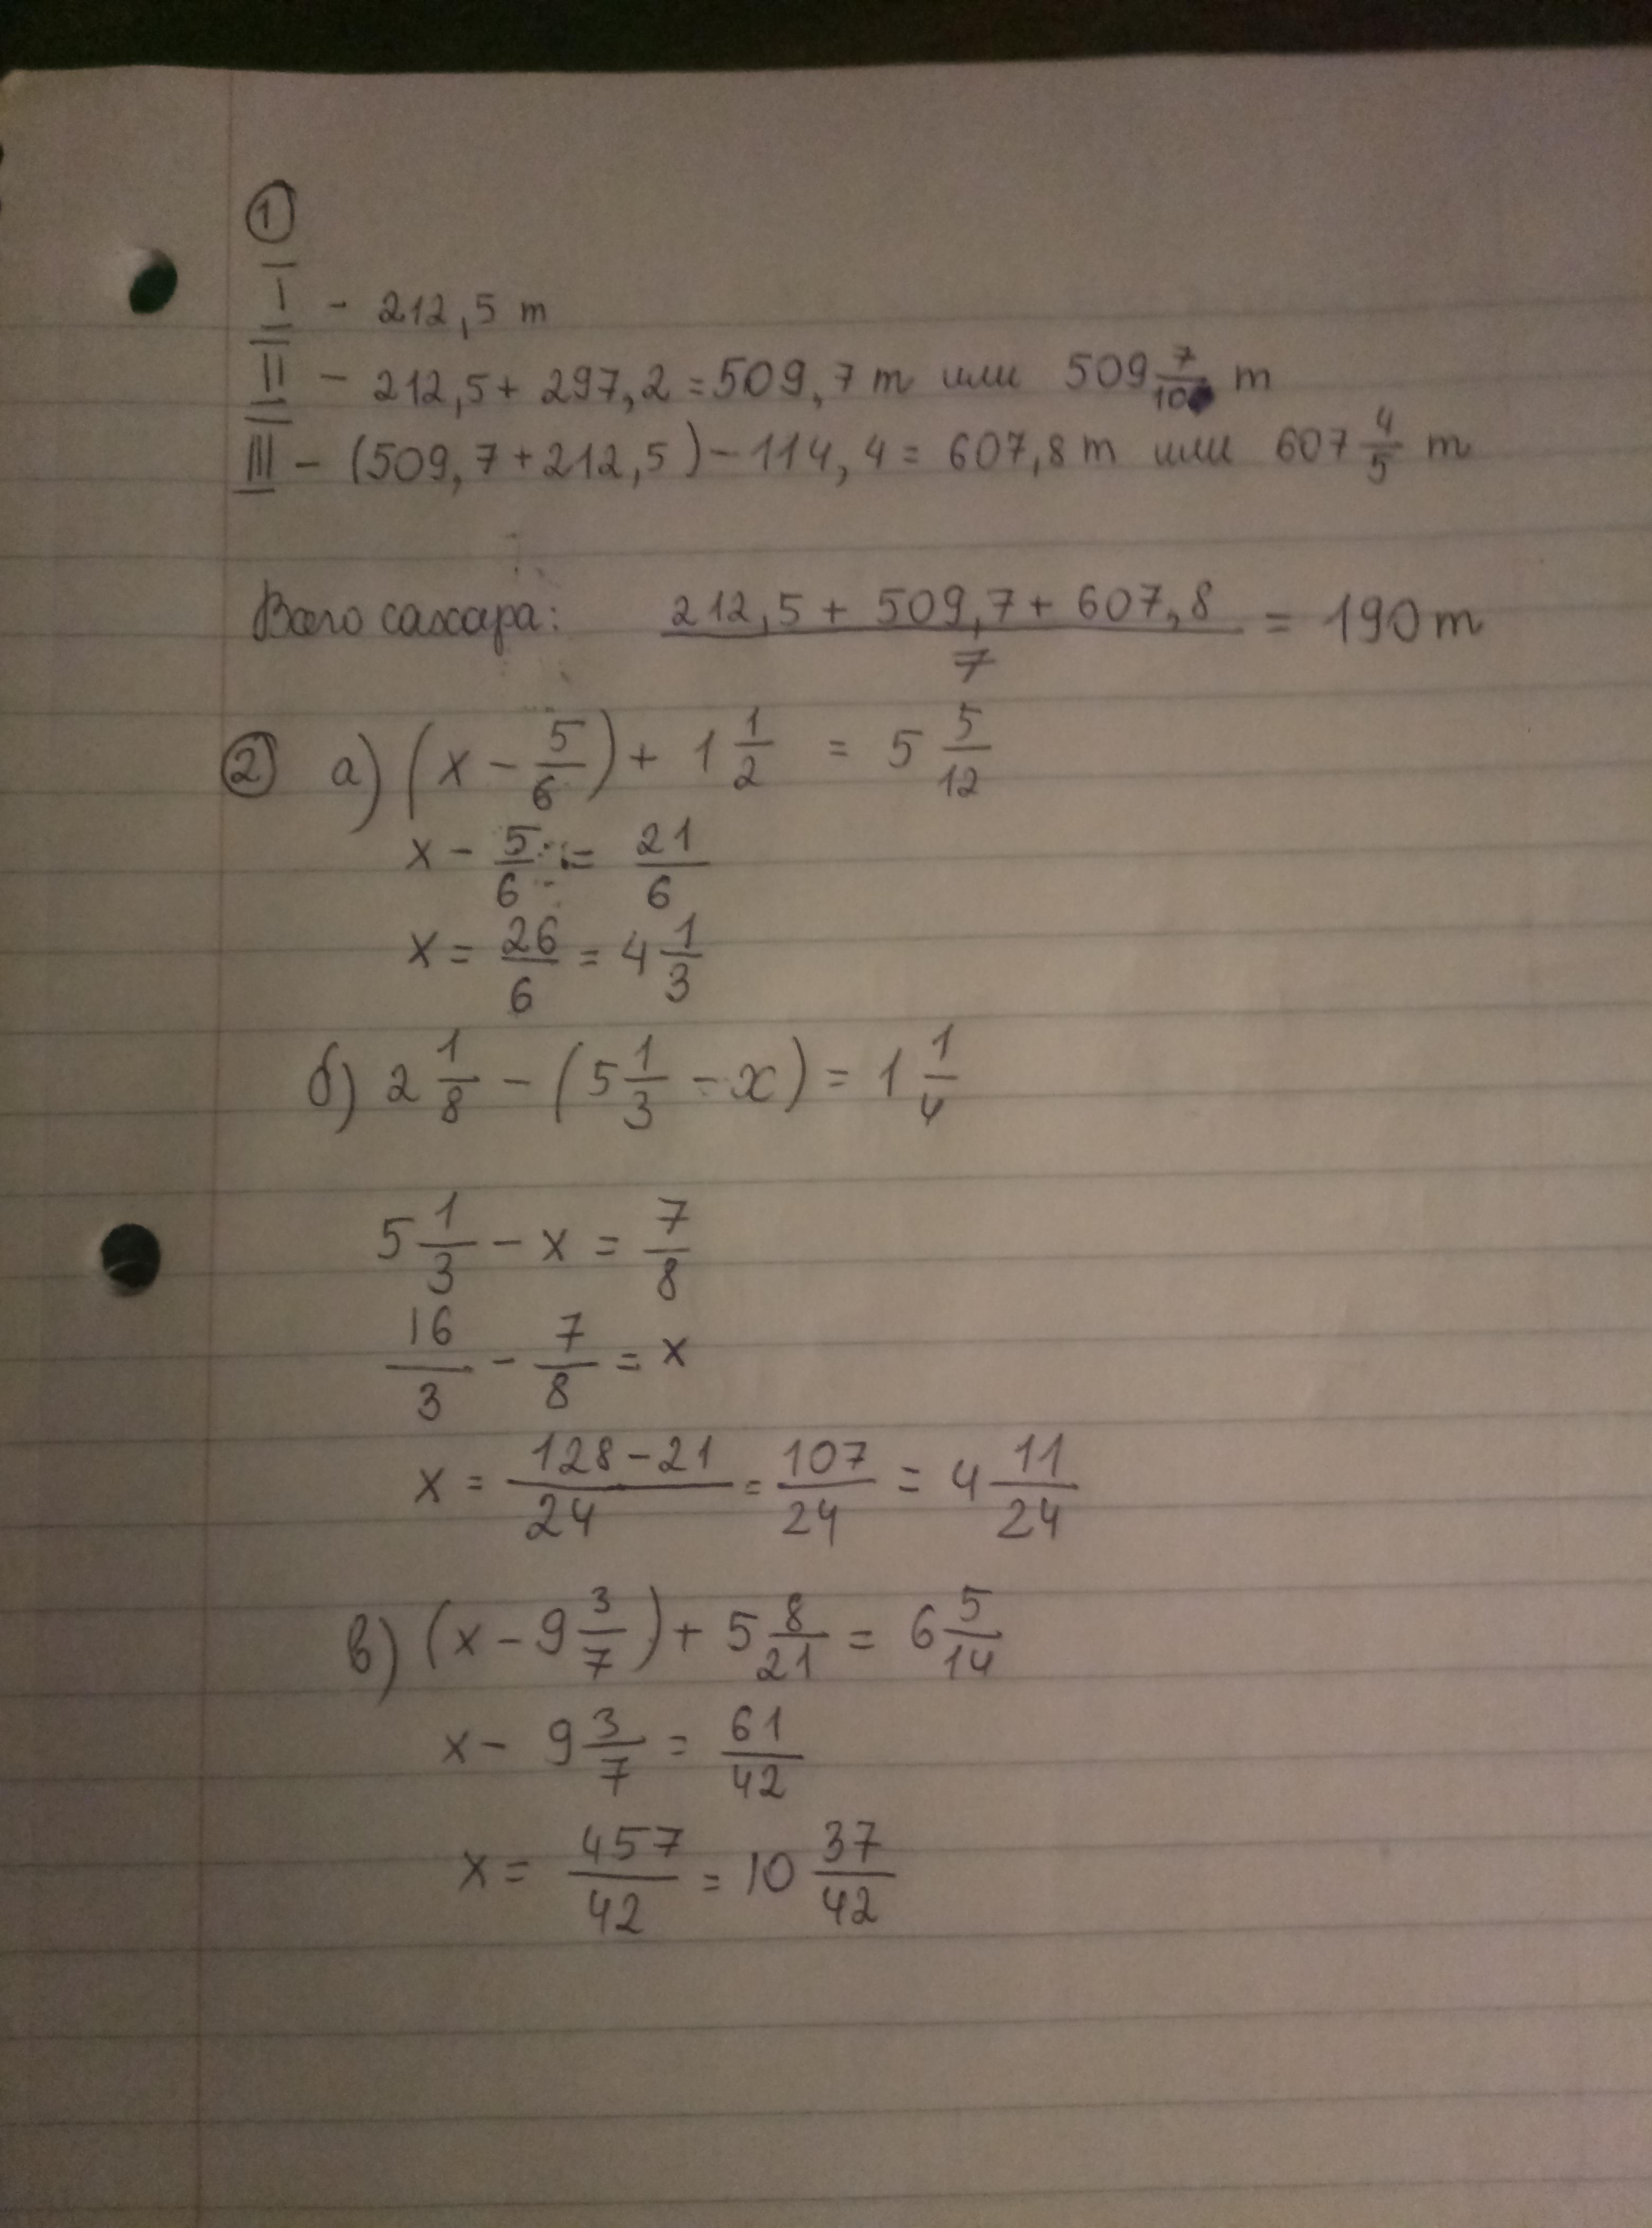 1
I - 212,5 т
II - 212,5 + 297,2 = 509,7 т или 509 7/10 т
III - (509,7 + 212,5) - 114,4 = 607,8 т или 607 4/5 т
Всего сахара: (212,5 + 509,7 + 607,8)/7 = 190 т
2 а) (x - 5/6) + 1 1/2 = 5 5/12
x - 5/6 = 21/6
x = 26/6 = 4 1/3
б) 2 1/8 - (5 1/3 - x) = 1 1/4
5 1/3 - x = 7/8
16/3 - 7/8 = x
x = (128 - 21)/24 = 107/24 = 4 11/24
в) (x - 9 3/7) + 5 8/21 = 6 5/14
x - 9 3/7 = 61/42
x = 457/42 = 10 37/42